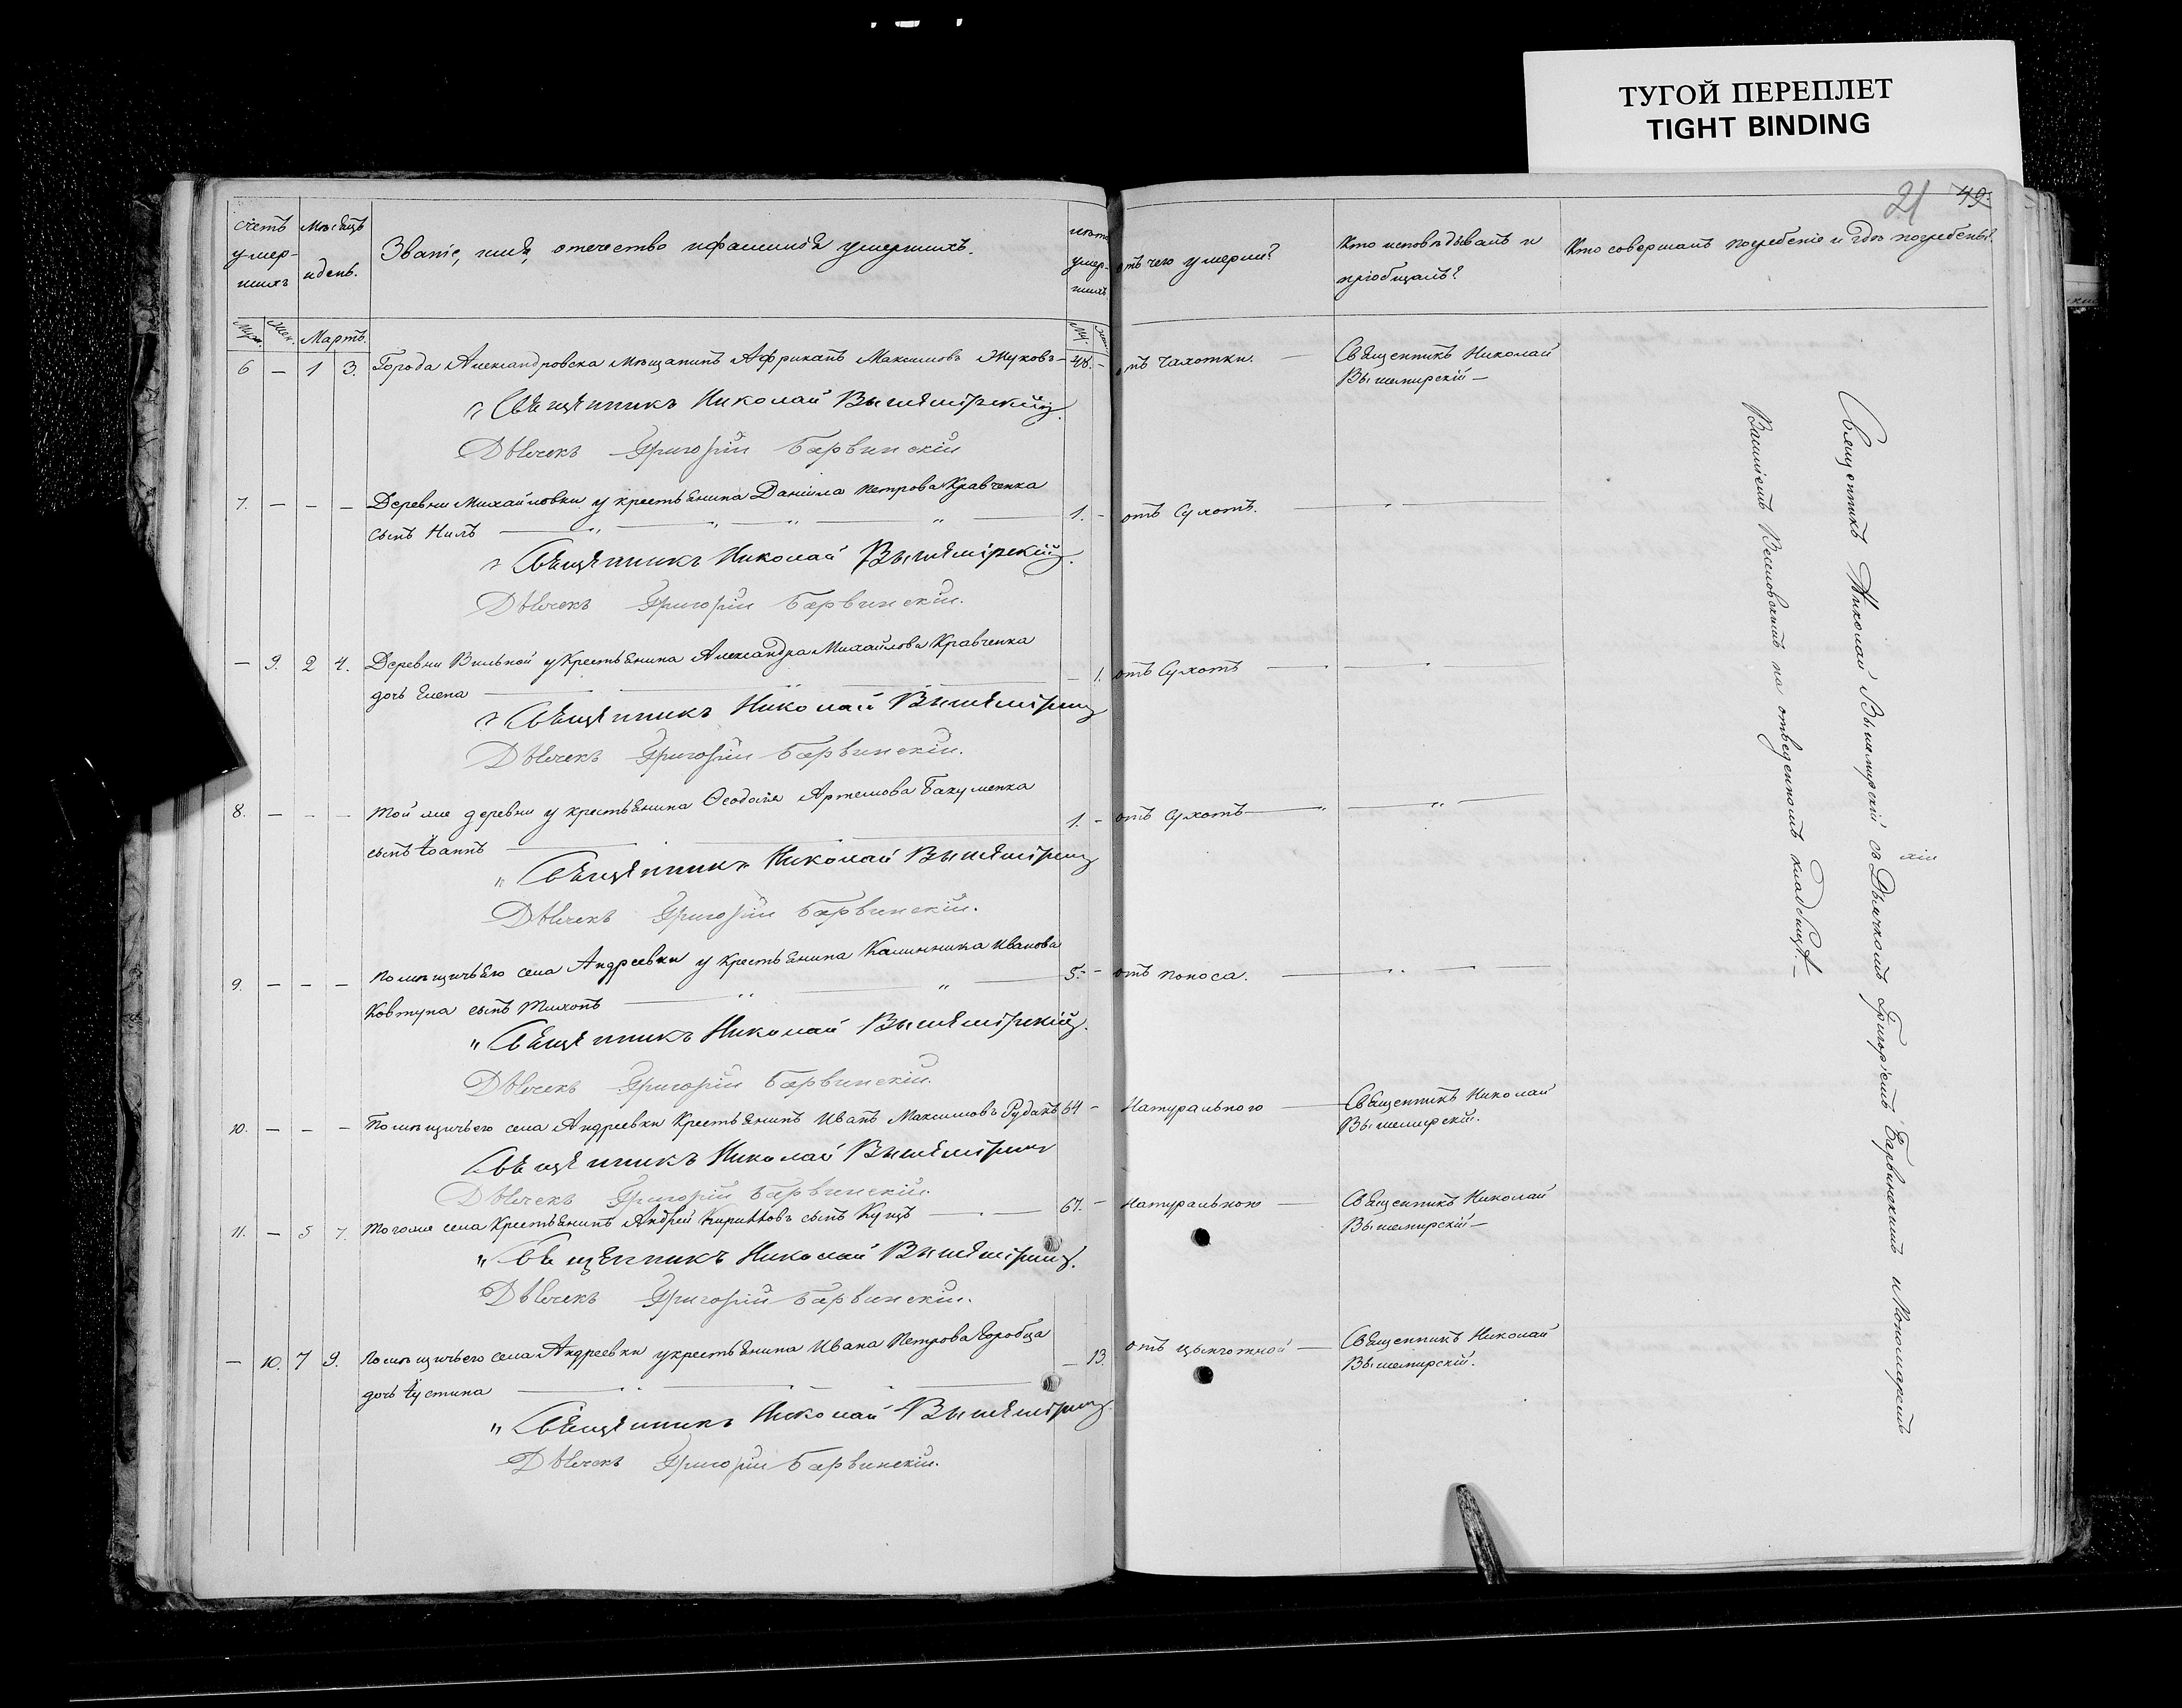 ТУГОЙ ПЕРЕПЛЕТ
TIGHT BINDING
21 49.
счетъ умер-шихъ
Мѣсяцъ и день.
Званіе, имя, отечество и фамилія умершихъ.
лѣта умер-шихъ
отъ чего умерли?
Кто исповѣдывалъ и пріобщалъ?
Кто совершалъ погребеніе и гдѣ погребены?
Муж. Жен. Мартъ. Му. Жен.
6 — 1 3. Города Александровска мѣщанинъ Африканъ Максимовъ Жуковъ — 48. — отъ чахотки. — Священникъ Николай
Вышемирскій —
Священникъ Николай Вышемірскій
Дьячекъ Григорій Барвинскій
7. — — — Деревни Михайловки у крестьянина Даніила Петрова Кравченка
сынъ Нилъ 1. — отъ Сухотъ.
Священникъ Николай Вышемірскій
Дьячекъ Григорій Барвинскій.
— 9. 2 4. Деревни Вильной у Крестьянина Александра Михайлова Кравченка
дочь Елена — 1. отъ Сухотъ
Священникъ Николай Вышемірскій
Дьячекъ Григорій Барвинскій.
8. — — — Той же деревни у крестьянина Ѳеодосія Артемова Бакуменка
сынъ Іоаннъ 1. — отъ Сухотъ
Священникъ Николай Вышемірскій
Дьячекъ Григорій Барвинскій.
9. — — — Помѣщичьего села Андреевки у Крестьянина Каллиника Иванова
Ковтуна сынъ Тихонъ 5. — отъ поноса.
Священникъ Николай Вышемірскій
Дьячекъ Григорій Барвинскій.
10. — — — Помѣщичьего села Андреевки Крестьянинъ Иванъ Максимовъ Рудакъ 64 — Натурального — Священникъ Николай
Вышемирскій.
Священникъ Николай Вышемірскій
Дьячекъ Григорій Барвинскій.
11. — 5 7. Того же села Крестьянинъ Андрей Кириловъ сынъ Куцъ 67. — Натурально — Священникъ Николай
Вышемирскій —
Священникъ Николай Вышемірскій
Дьячекъ Григорій Барвинскій.
— 10. 7 9. Помѣщичьего села Андреевки у крестьянина Ивана Петрова
дочь Іустина — 13. отъ цынготной — Священникъ Николай
Вышемирскій.
Священникъ Николай Вышемірскій
Дьячекъ Григорій Барвинскій.
Священникъ Николай Вышемирскій съ Дьячкомъ Григоріемъ Барвинскимъ и Пономаремъ
на отведенномъ кладбищѣ. —